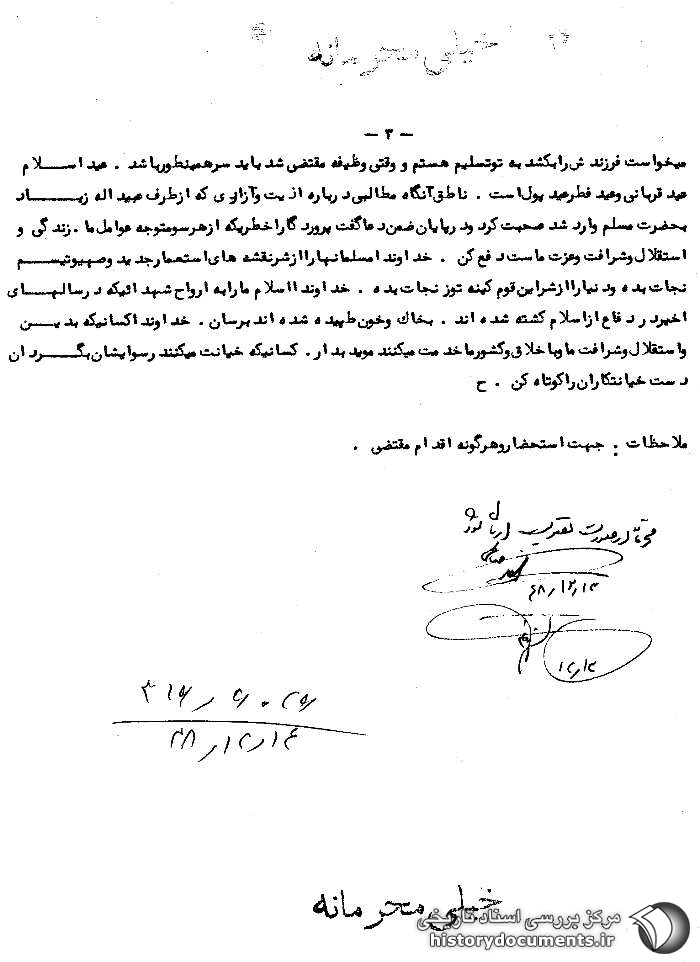 خیلی محرمانه
- ۳ -
میخواست فرزندش رابکشد به توتسلیم هستم و وقتی وظیفه مقتضی شد باید سرهمینطورباشد . عید اسلام
عید قربانی وعید فطرعید پول است . ناطق آنگاه مطالبی درباره اذیت وآزاری که ازطرف عبیداله زیاد
بحضرت مسلم وارد شد صحبت کرد ودرپایان ضمن دعاگفت پروردگاراخطریکه ازهرسومتوجه عوامل ما . زندگی و
استقلال وشرافت وعزت ماست دفع کن . خداوندا مسلمانهاراازشرنقشه های استعمارجدید وصهیونیسم
نجات بده ودنیاراازشراین قوم کینه توز نجات بده . خداوندا اسلام مارابه ارواح شهدائیکه درسالهای
اخیردر دفاع ازاسلام کشته شده اند . بخاک وخون طپیده شده اند برسان . خداوندا کسانیکه بدین
واستقلال وشرافت ما وبا خلاق وکشورماخدمت میکنند موید بدار . کسانیکه خیانت میکنند رسوایشان بگردان
دست خیانتکاران راکوتاه کن . ح
ملاحظات : جهت استحضاروهرگونه اقدام مقتضی .
۴۸٫۱۲٫۱۳
خیلی محرمانه
مرکز بررسی اسناد تاریخی
historydocuments.ir